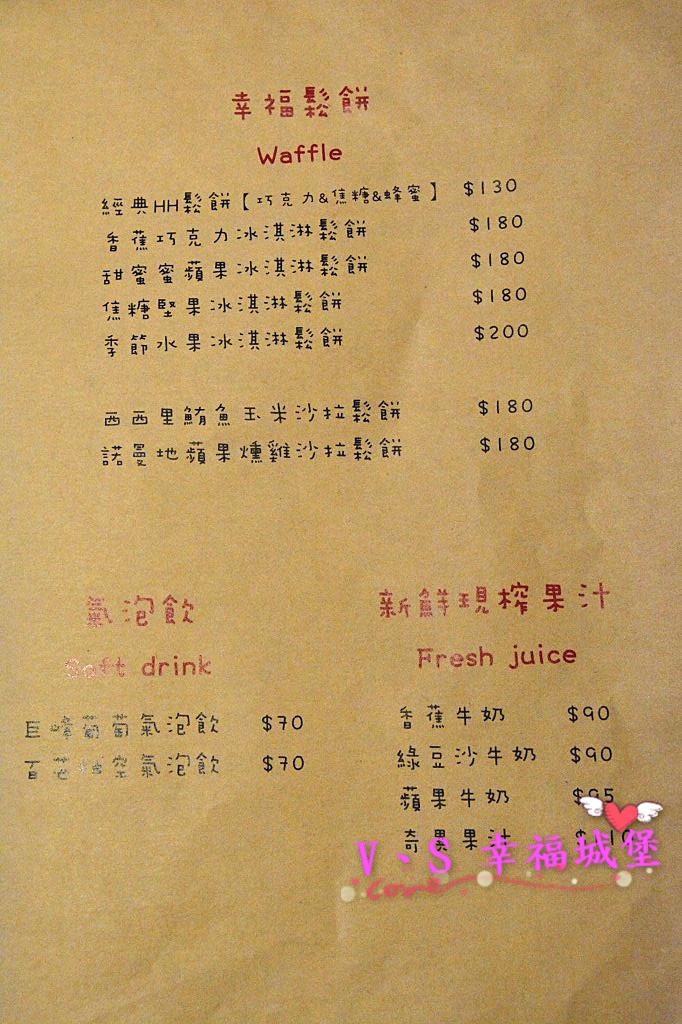 幸福鬆餅
Waffle
經典HH鬆餅【巧克力&焦糖&蜂蜜】 $130
香蕉巧克力冰淇淋鬆餅 $180
甜蜜蜜蘋果冰淇淋鬆餅 $180
焦糖堅果冰淇淋鬆餅 $180
季節水果冰淇淋鬆餅 $200
西西里鮪魚玉米沙拉鬆餅 $180
諾曼地蘋果燻雞沙拉鬆餅 $180
氣泡飲
Soft drink
巨峰葡萄氣泡飲 $70
百芒 空氣泡飲 $70
新鮮現榨果汁
Fresh juice
香蕉牛奶 $90
綠豆沙牛奶 $90
蘋果牛奶 $95
奇異果汁
V、S 幸福城堡
Love